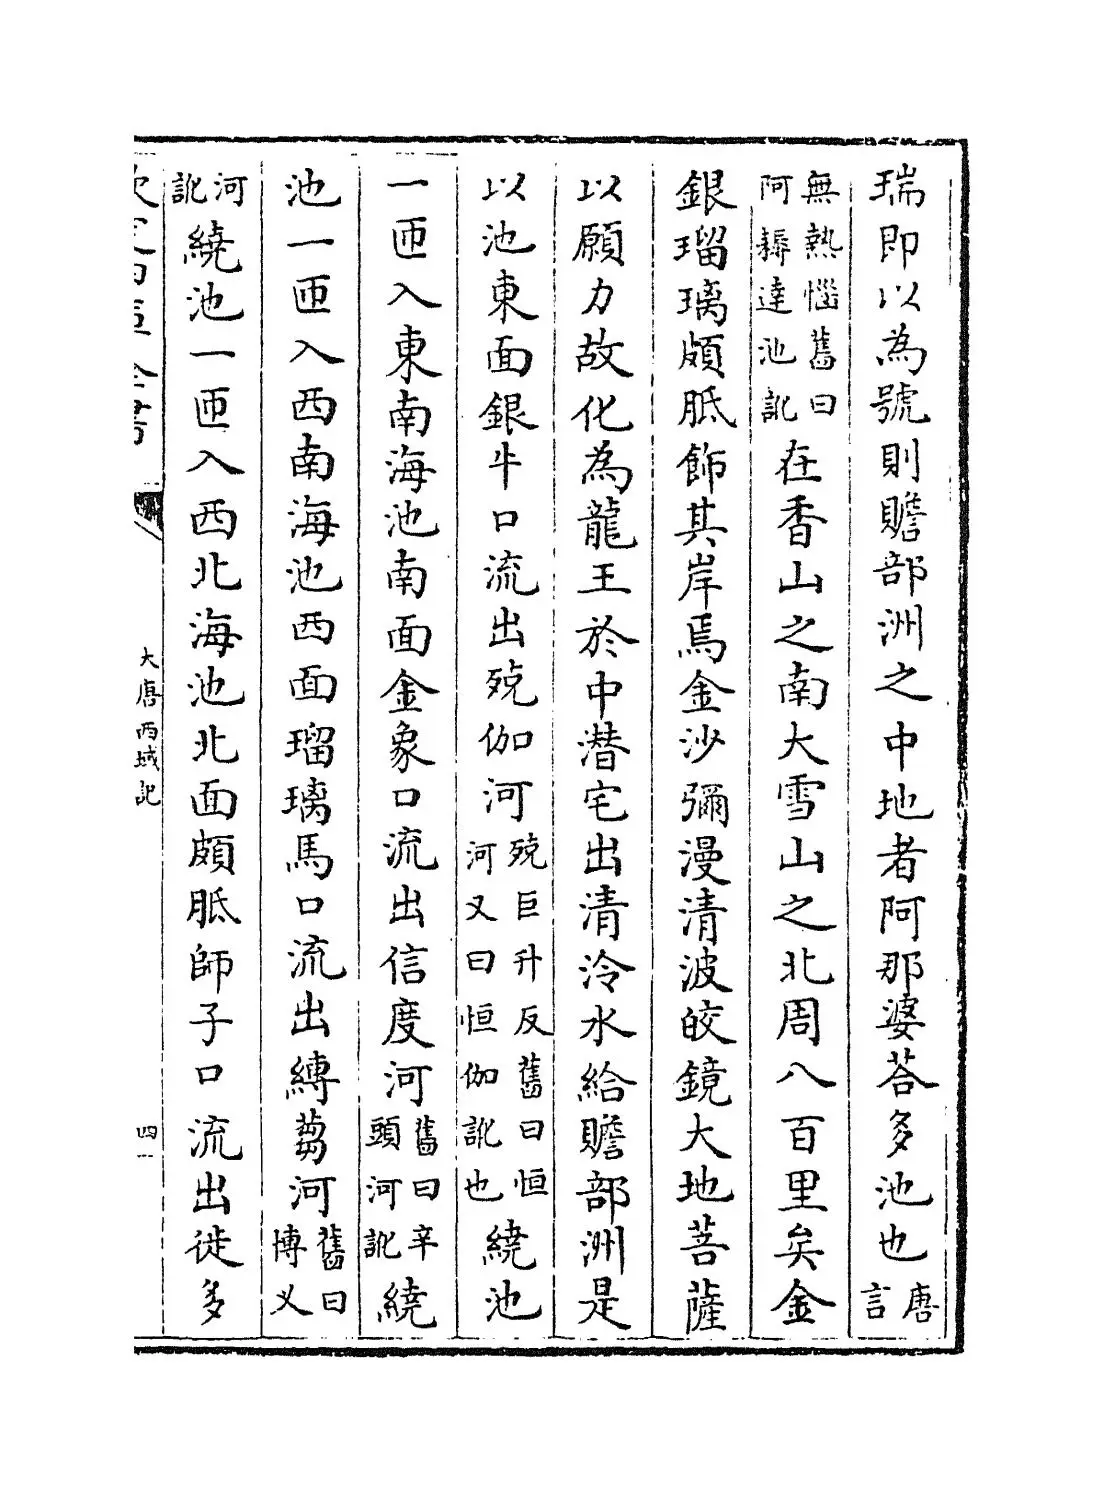 瑞即以為號則贍部洲之中地者阿那婆荅多池也唐言
無熱惱舊曰阿耨達池訛在香山之南大雪山之北周八百里矣金
銀瑠璃頗胝飾其岸焉金沙彌漫清波皎鏡大地菩薩
以願力故化為龍王於中潜宅出清冷水給贍部洲是
以池東面銀牛口流出殑伽河殑巨升反舊曰恒河又曰恒伽訛也繞池
一匝入東南海池南面金象口流出信度河舊曰辛頭河訛繞
池一匝入西南海池西面瑠璃馬口流出縛芻河舊曰博义
河訛繞池一匝入西北海池北面頗胝師子口流出徙多
欽定四庫全書
大唐西域記
四一